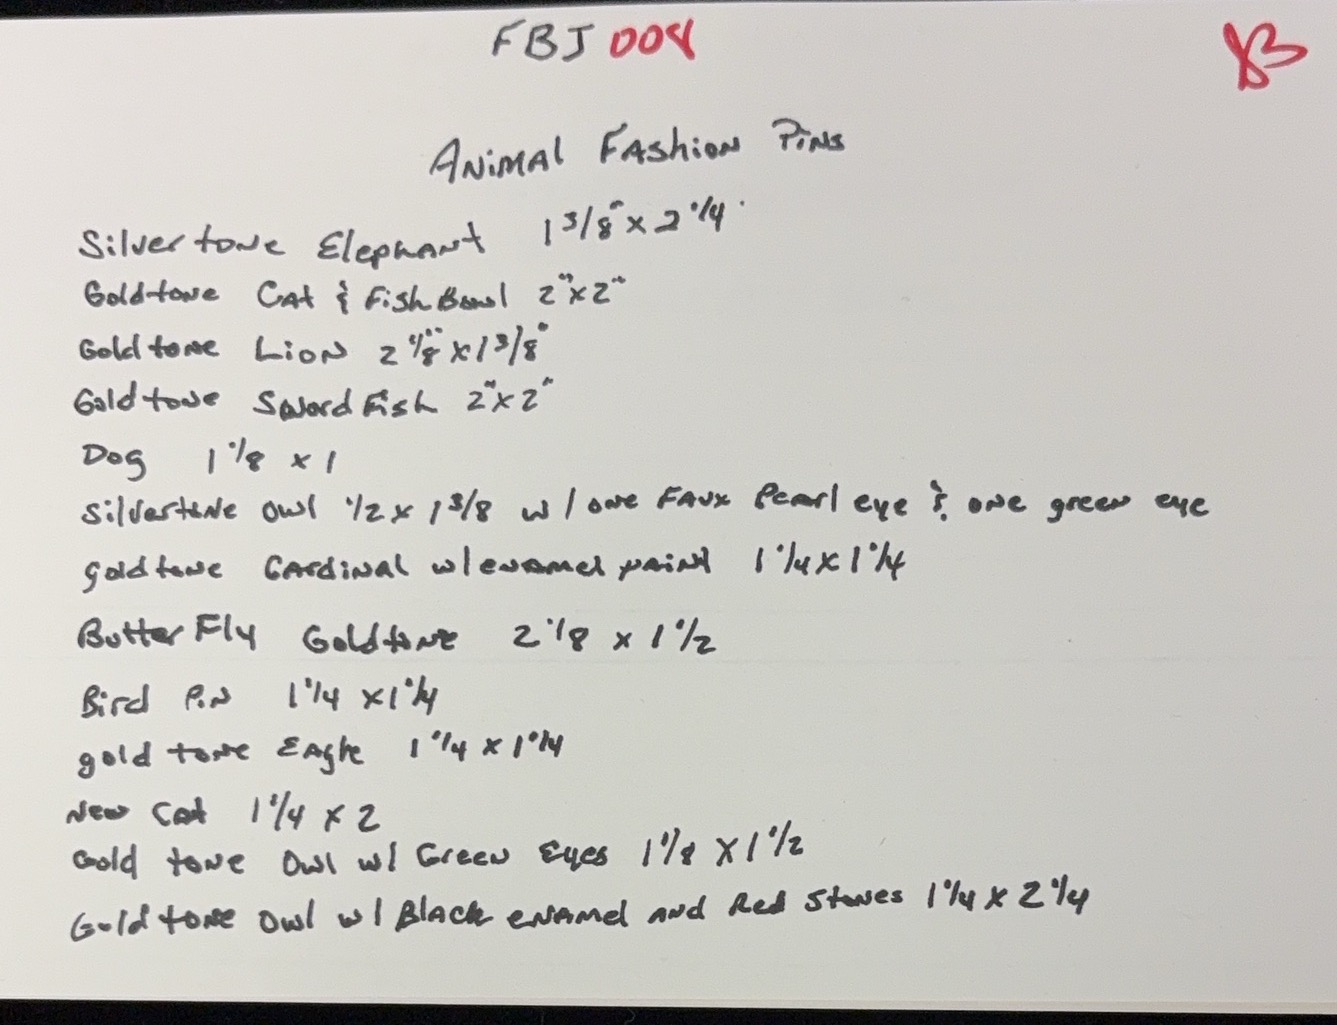 FBJ 008
Animal Fashion Pins
Silvertone Elephant 1 3/8" x 2 1/4"
Goldtone Cat & Fish Bowl 2" x 2"
Goldtone Lion 2 1/8" x 1 3/8"
Goldtone Swordfish 2" x 2"
Dog 1 1/8 x 1
Silvertone Owl 1/2 x 1 3/8 w/ one Faux Pearl eye & one green eye
goldtone Cardinal w/ enamel paint 1 1/4 x 1 1/4
Butterfly Goldtone 2 1/8 x 1 1/2
Bird Pin 1 1/4 x 1 1/4
gold tone Eagle 1 1/4 x 1 1/4
New Cat 1 1/4 x 2
Gold tone Owl w/ Green Eyes 1 1/8 x 1 1/2
Gold tone Owl w/ Black enamel and Red Stones 1 1/4 x 2 1/4